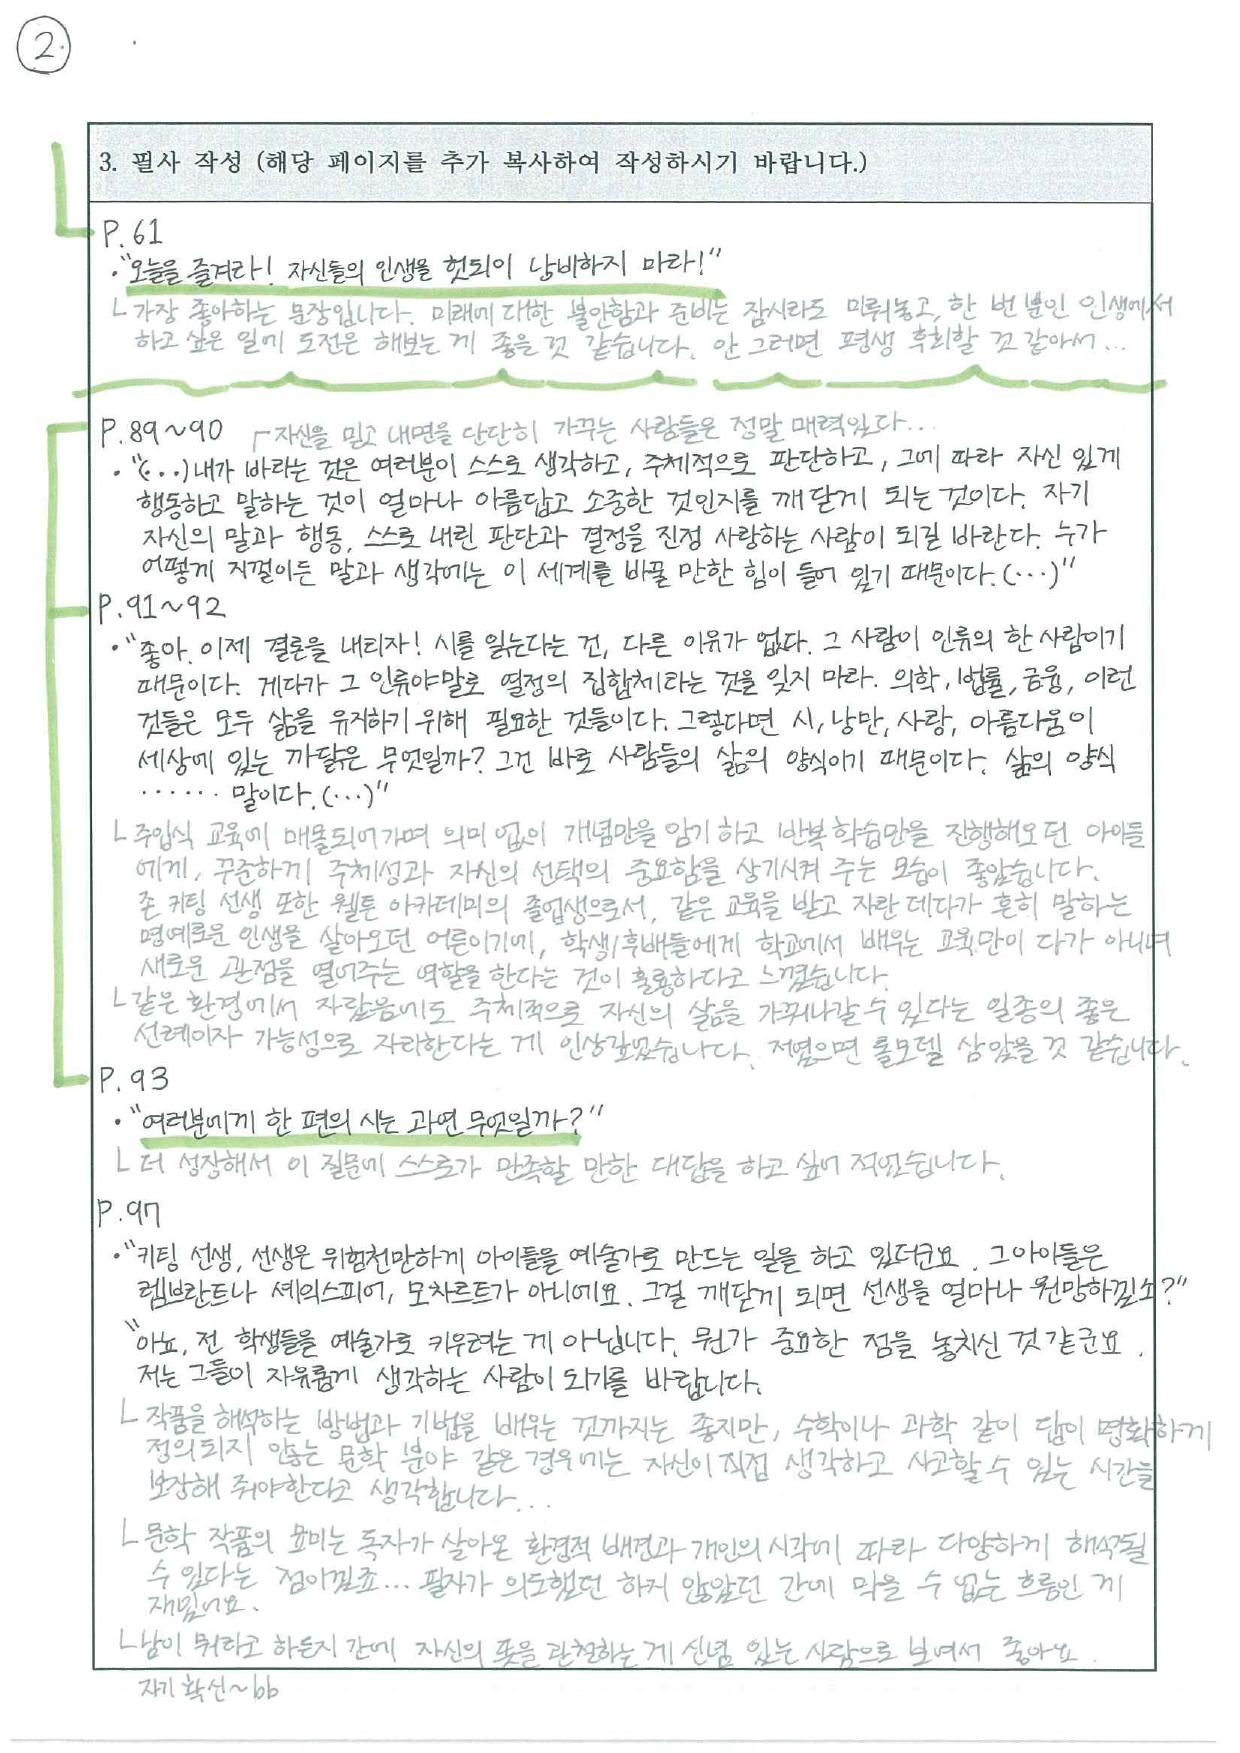 2.
3. 필사 작성 (해당 페이지를 추가 복사하여 작성하시기 바랍니다.)
P.61
·"오늘을 즐겨라! 자신들의 인생을 헛되이 낭비하지 마라!"
└가장 좋아하는 문장입니다. 미래에 대한 불안함과 준비는 잠시라도 미뤄놓고, 한 번 뿐인 인생에서
하고 싶은 일에 도전은 해보는 게 좋을 것 같습니다. 안 그러면 평생 후회할 것 같아서...
P.89~90 ┌자신을 믿고 내면을 단단히 가꾸는 사람들은 정말 매력있다...
·"(...)내가 바라는 것은 여러분이 스스로 생각하고, 주체적으로 판단하고, 그에 따라 자신 있게
행동하고 말하는 것이 얼마나 아름답고 소중한 것인지를 깨닫게 되는 것이다. 자기
자신의 말과 행동, 스스로 내린 판단과 결정을 진정 사랑하는 사람이 되길 바란다. 누가
어떻게 지껄이든 말과 생각에는 이 세계를 바꿀 만한 힘이 들어 있기 때문이다.(...)"
P.91~92
·"좋아. 이제 결론을 내리자! 시를 읽는다는 건, 다른 이유가 없다. 그 사람이 인류의 한 사람이기
때문이다. 게다가 그 인류야말로 열정의 집합체라는 것을 잊지 마라. 의학, 법률, 금융, 이런
것들은 모두 삶을 유지하기 위해 필요한 것들이다. 그렇다면 시, 낭만, 사랑, 아름다움이
세상에 있는 까닭은 무엇일까? 그건 바로 사람들의 삶의 양식이기 때문이다. 삶의 양식
...... 말이다.(...)"
└주입식 교육에 매몰되어가며 의미 없이 개념만을 암기하고 반복학습만을 진행해오던 아이들
에게, 꾸준하게 주체성과 자신의 선택의 중요함을 상기시켜 주는 모습이 좋았습니다.
존 키팅 선생 또한 웰튼 아카데미의 졸업생으로서, 같은 교육을 받고 자란 데다가 흔히 말하는
명예로운 인생을 살아오던 어른이기에, 학생/후배들에게 학교에서 배우는 교육만이 다가 아니며
새로운 관점을 열어주는 역할을 한다는 것이 훌륭하다고 느꼈습니다.
└같은 환경에서 자랐음에도 주체적으로 자신의 삶을 가꿔나갈 수 있다는 일종의 좋은
선례이자 가능성으로 자리한다는 게 인상깊었습니다. 저였으면 롤모델 삼았을 것 같습니다.
P.93
·"여러분에게 한 편의 시는 과연 무엇일까?"
└더 성장해서 이 질문에 스스로가 만족할 만한 대답을 하고 싶어 적었습니다.
P.97
·"키팅 선생, 선생은 위험천만하게 아이들을 예술가로 만드는 일을 하고 있더군요. 그 아이들은
렘브란트나 셰익스피어, 모차르트가 아니에요. 그걸 깨닫게 되면 선생을 얼마나 원망하겠소?"
"아뇨, 전 학생들을 예술가로 키우려는 게 아닙니다. 뭔가 중요한 점을 놓치신 것 같군요.
저는 그들이 자유롭게 생각하는 사람이 되기를 바랍니다.
└작품을 해석하는 방법과 기법을 배우는 것까지는 좋지만, 수학이나 과학 같이 답이 명확하게
정의되지 않는 문학 분야 같은 경우에는 자신이 직접 생각하고 사고할 수 있는 시간을
보장해 줘야한다고 생각합니다...
└문학 작품의 묘미는 독자가 살아온 환경적 배경과 개인의 시각에 따라 다양하게 해석될
수 있다는 점이겠죠... 필자가 의도했던 하지 않았던 간에 막을 수 없는 흐름인 게
재밌어요.
└남이 뭐라고 하든지 간에 자신의 뜻을 관철하는 게 신념 있는 사람으로 보여서 좋아요.
자기 확신~bb